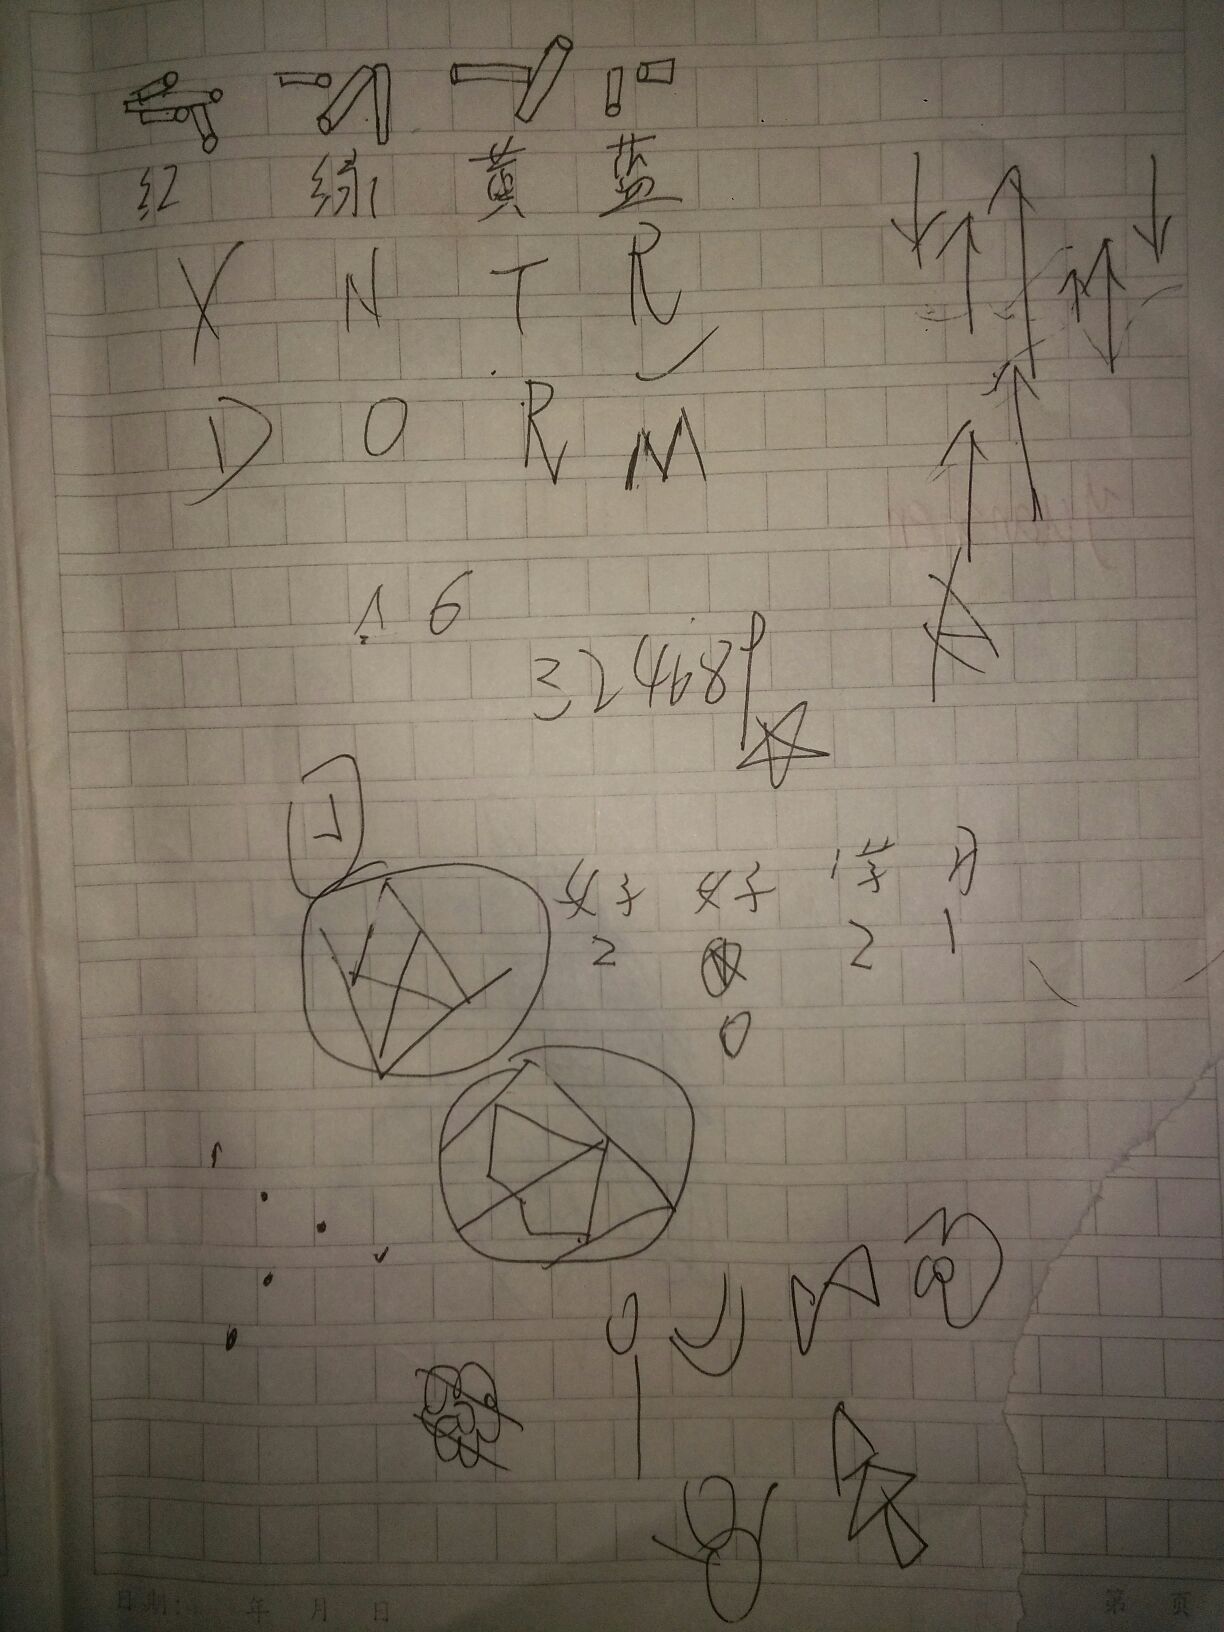 红 绿 黄 蓝
X N T R
D O R M
1 6
324689
女子 女子 学 月
2 2 1
0
日期: 年 月 日 第 页